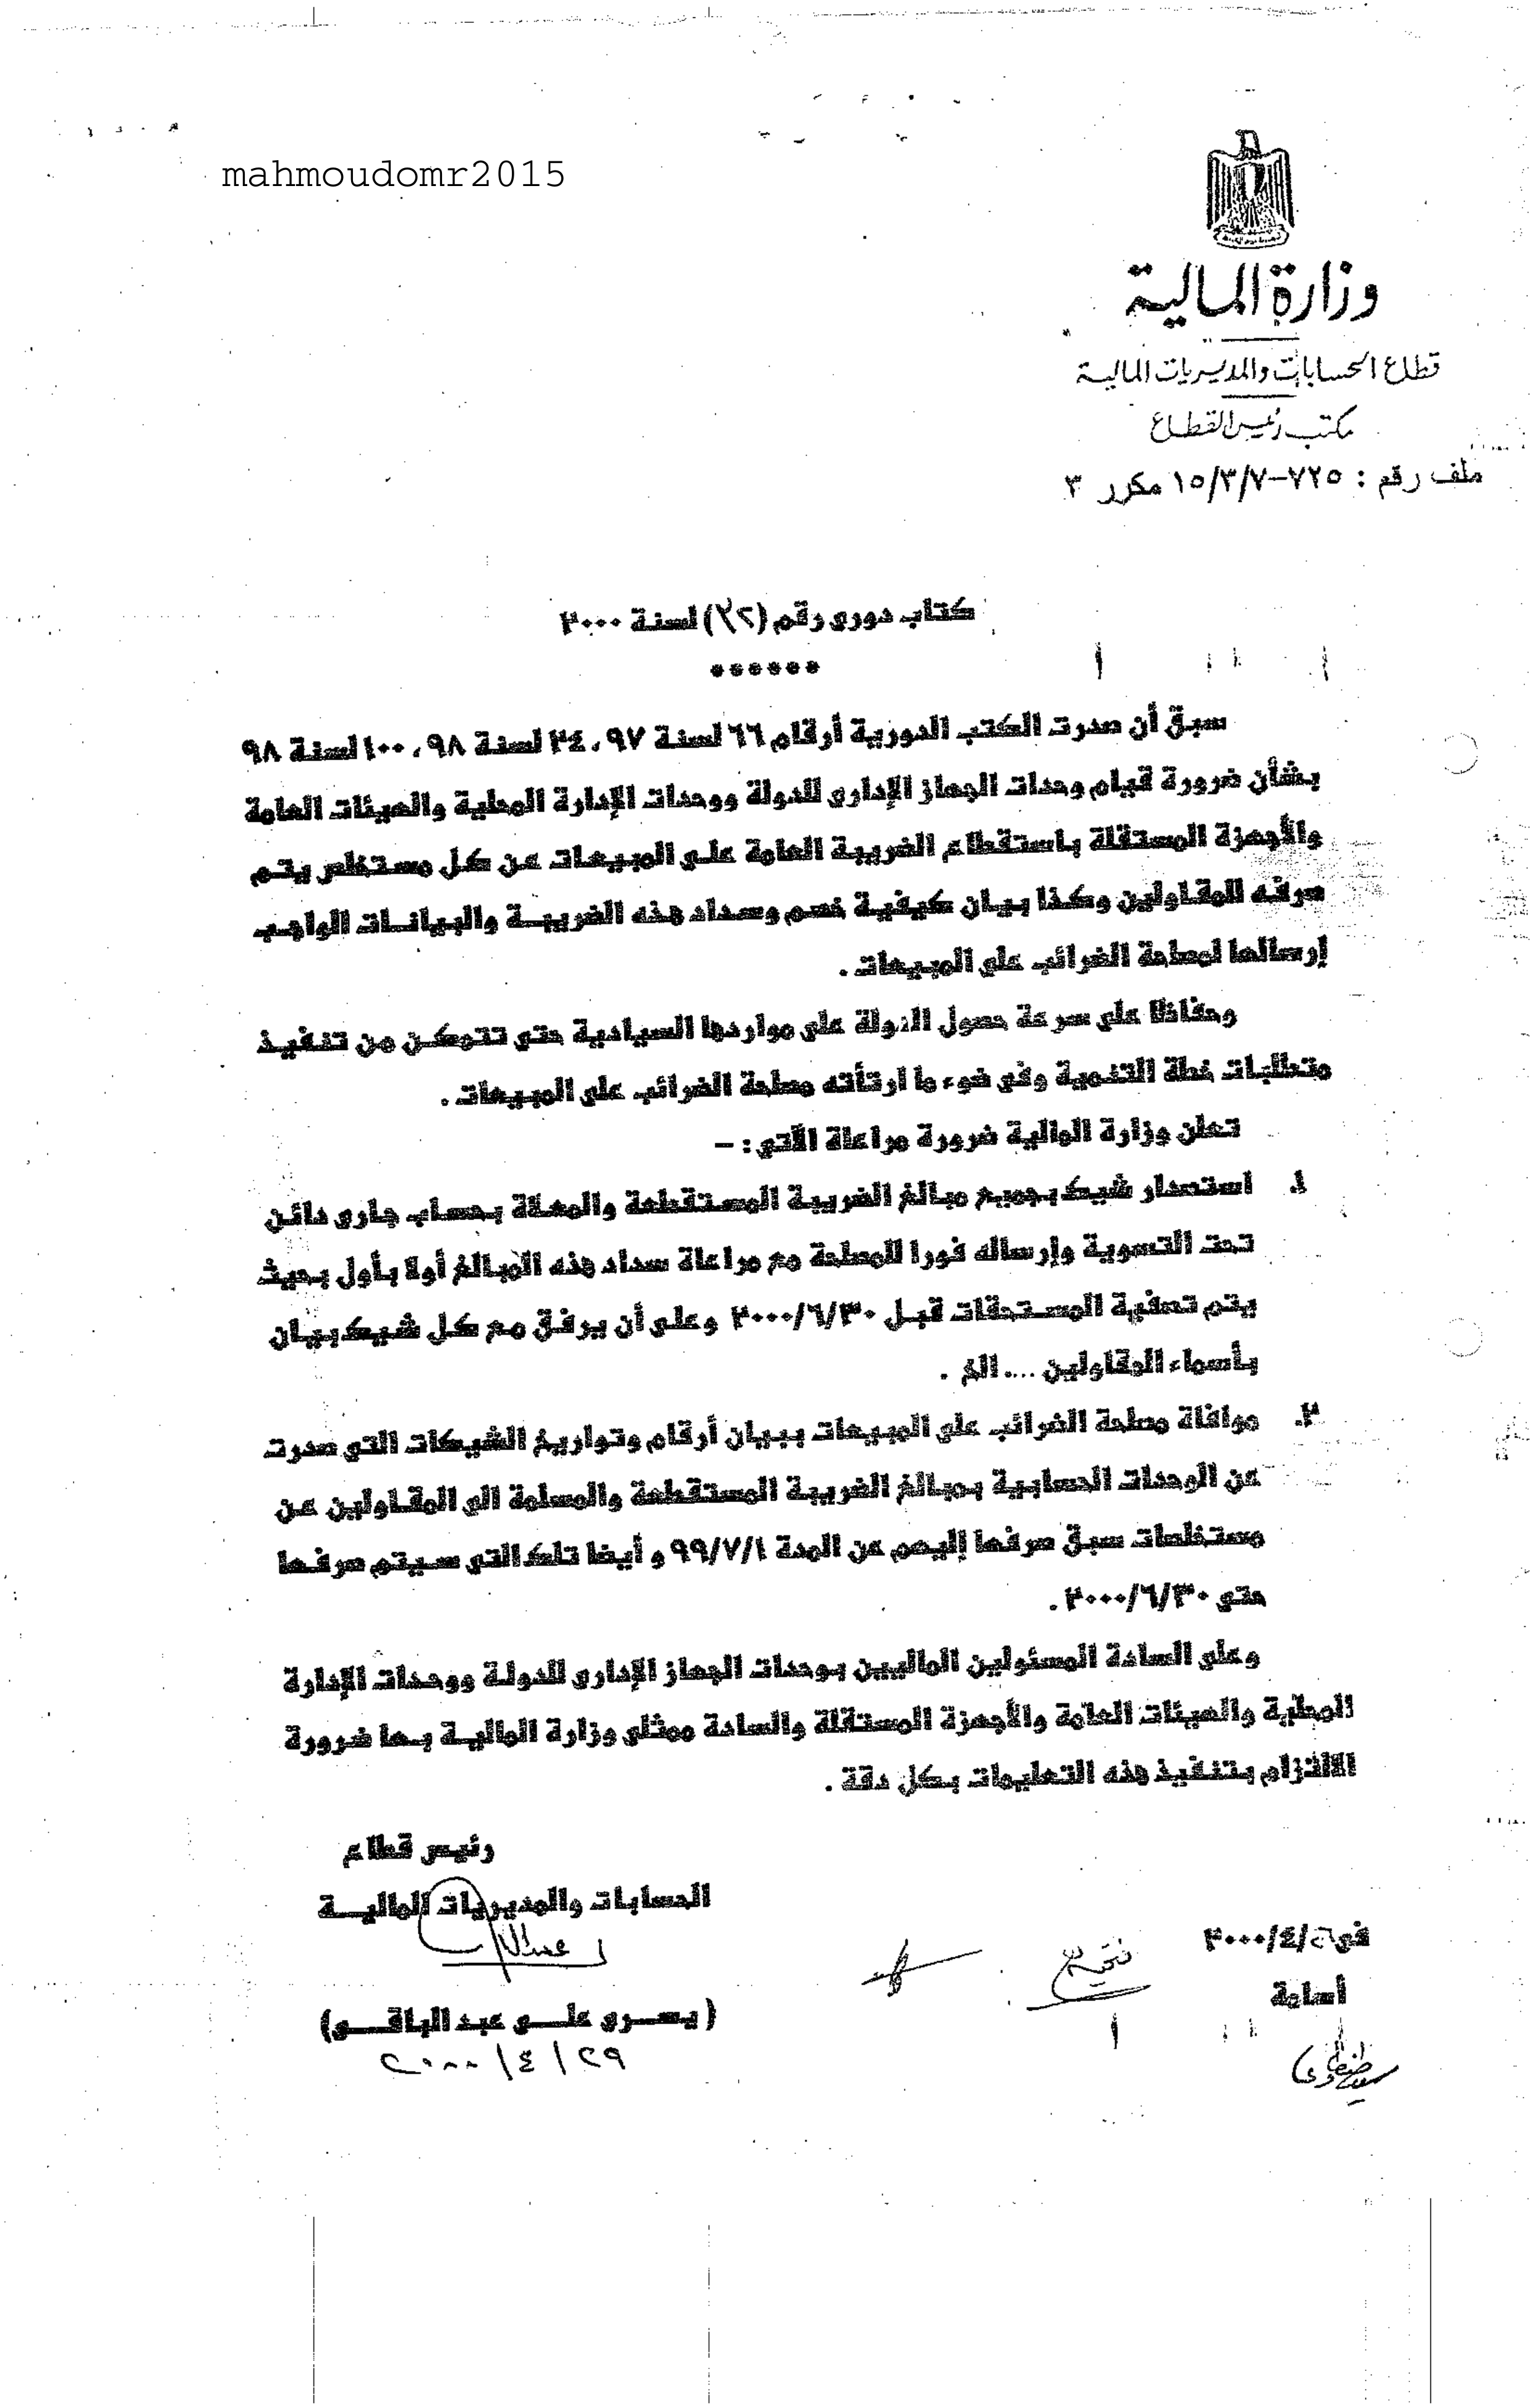 mahmoudomr2015
وزارة المالية
قطاع الحسابات والمديريات المالية
مكتب رئيس القطاع
ملف رقم : ٧٢٥-١٥/٣/٧ مكرر ٣
كتاب دورى رقم (٣٢) لسنة ٢٠٠٠
******
سبق أن صدرت الكتب الدورية أرقام ٦٦ لسنة ٩٧ ، ٢٤ لسنة ٩٨ ، ١٠٠ لسنة ٩٨
بشأن ضرورة قيام وحدات الجهاز الإدارى للدولة ووحدات الإدارة المحلية والهيئات العامة
والأجهزة المستقلة باستقطاع الضريبة العامة على المبيعات عن كل مستخلص يتم
صرفه للمقاولين وكذا بيان كيفية خصم وسداد هذه الضريبة والبيانات الواجب
إرسالها لمصلحة الضرائب على المبيعات .
وحفاظا على سرعة حصول الدولة على مواردها السيادية حتى تتمكن من تنفيذ
متطلبات خطة التنمية وفى ضوء ما ارتأته مصلحة الضرائب على المبيعات .
تعلن وزارة المالية ضرورة مراعاة الآتى : –
١. استصدار شيك بجميع مبالغ الضريبة المستقطعة والمعلاة بحساب جارى دائن
تحت التسوية وإرساله فورا للمصلحة مع مراعاة سداد هذه المبالغ أولا بأول بحيث
يتم تصفية المستحقات قبل ٢٠٠٠/٦/٣٠ وعلى أن يرفق مع كل شيك بيان
بأسماء المقاولين .... الخ .
٢. موافاة مصلحة الضرائب على المبيعات ببيان أرقام وتواريخ الشيكات التى صدرت
عن الوحدات الحسابية بمبالغ الضريبة المستقطعة والمسلمة الى المقاولين عن
مستخلصات سبق صرفها إليهم عن المدة ٩٩/٧/١ و أيضا تلك التى سيتم صرفها
حتى ٢٠٠٠/٦/٣٠ .
وعلى السادة المسئولين الماليين بوحدات الجهاز الإدارى للدولة ووحدات الإدارة
المحلية والهيئات العامة والأجهزة المستقلة والسادة ممثلى وزارة المالية بها ضرورة
الالتزام بتنفيذ هذه التعليمات بكل دقة .
رئيس قطاع
الحسابات والمديريات المالية
(يسرى على عبد الباقى)
٢٠٠٠/٤/٢٩
فى / ٢٠٠٠/٤
أسامة